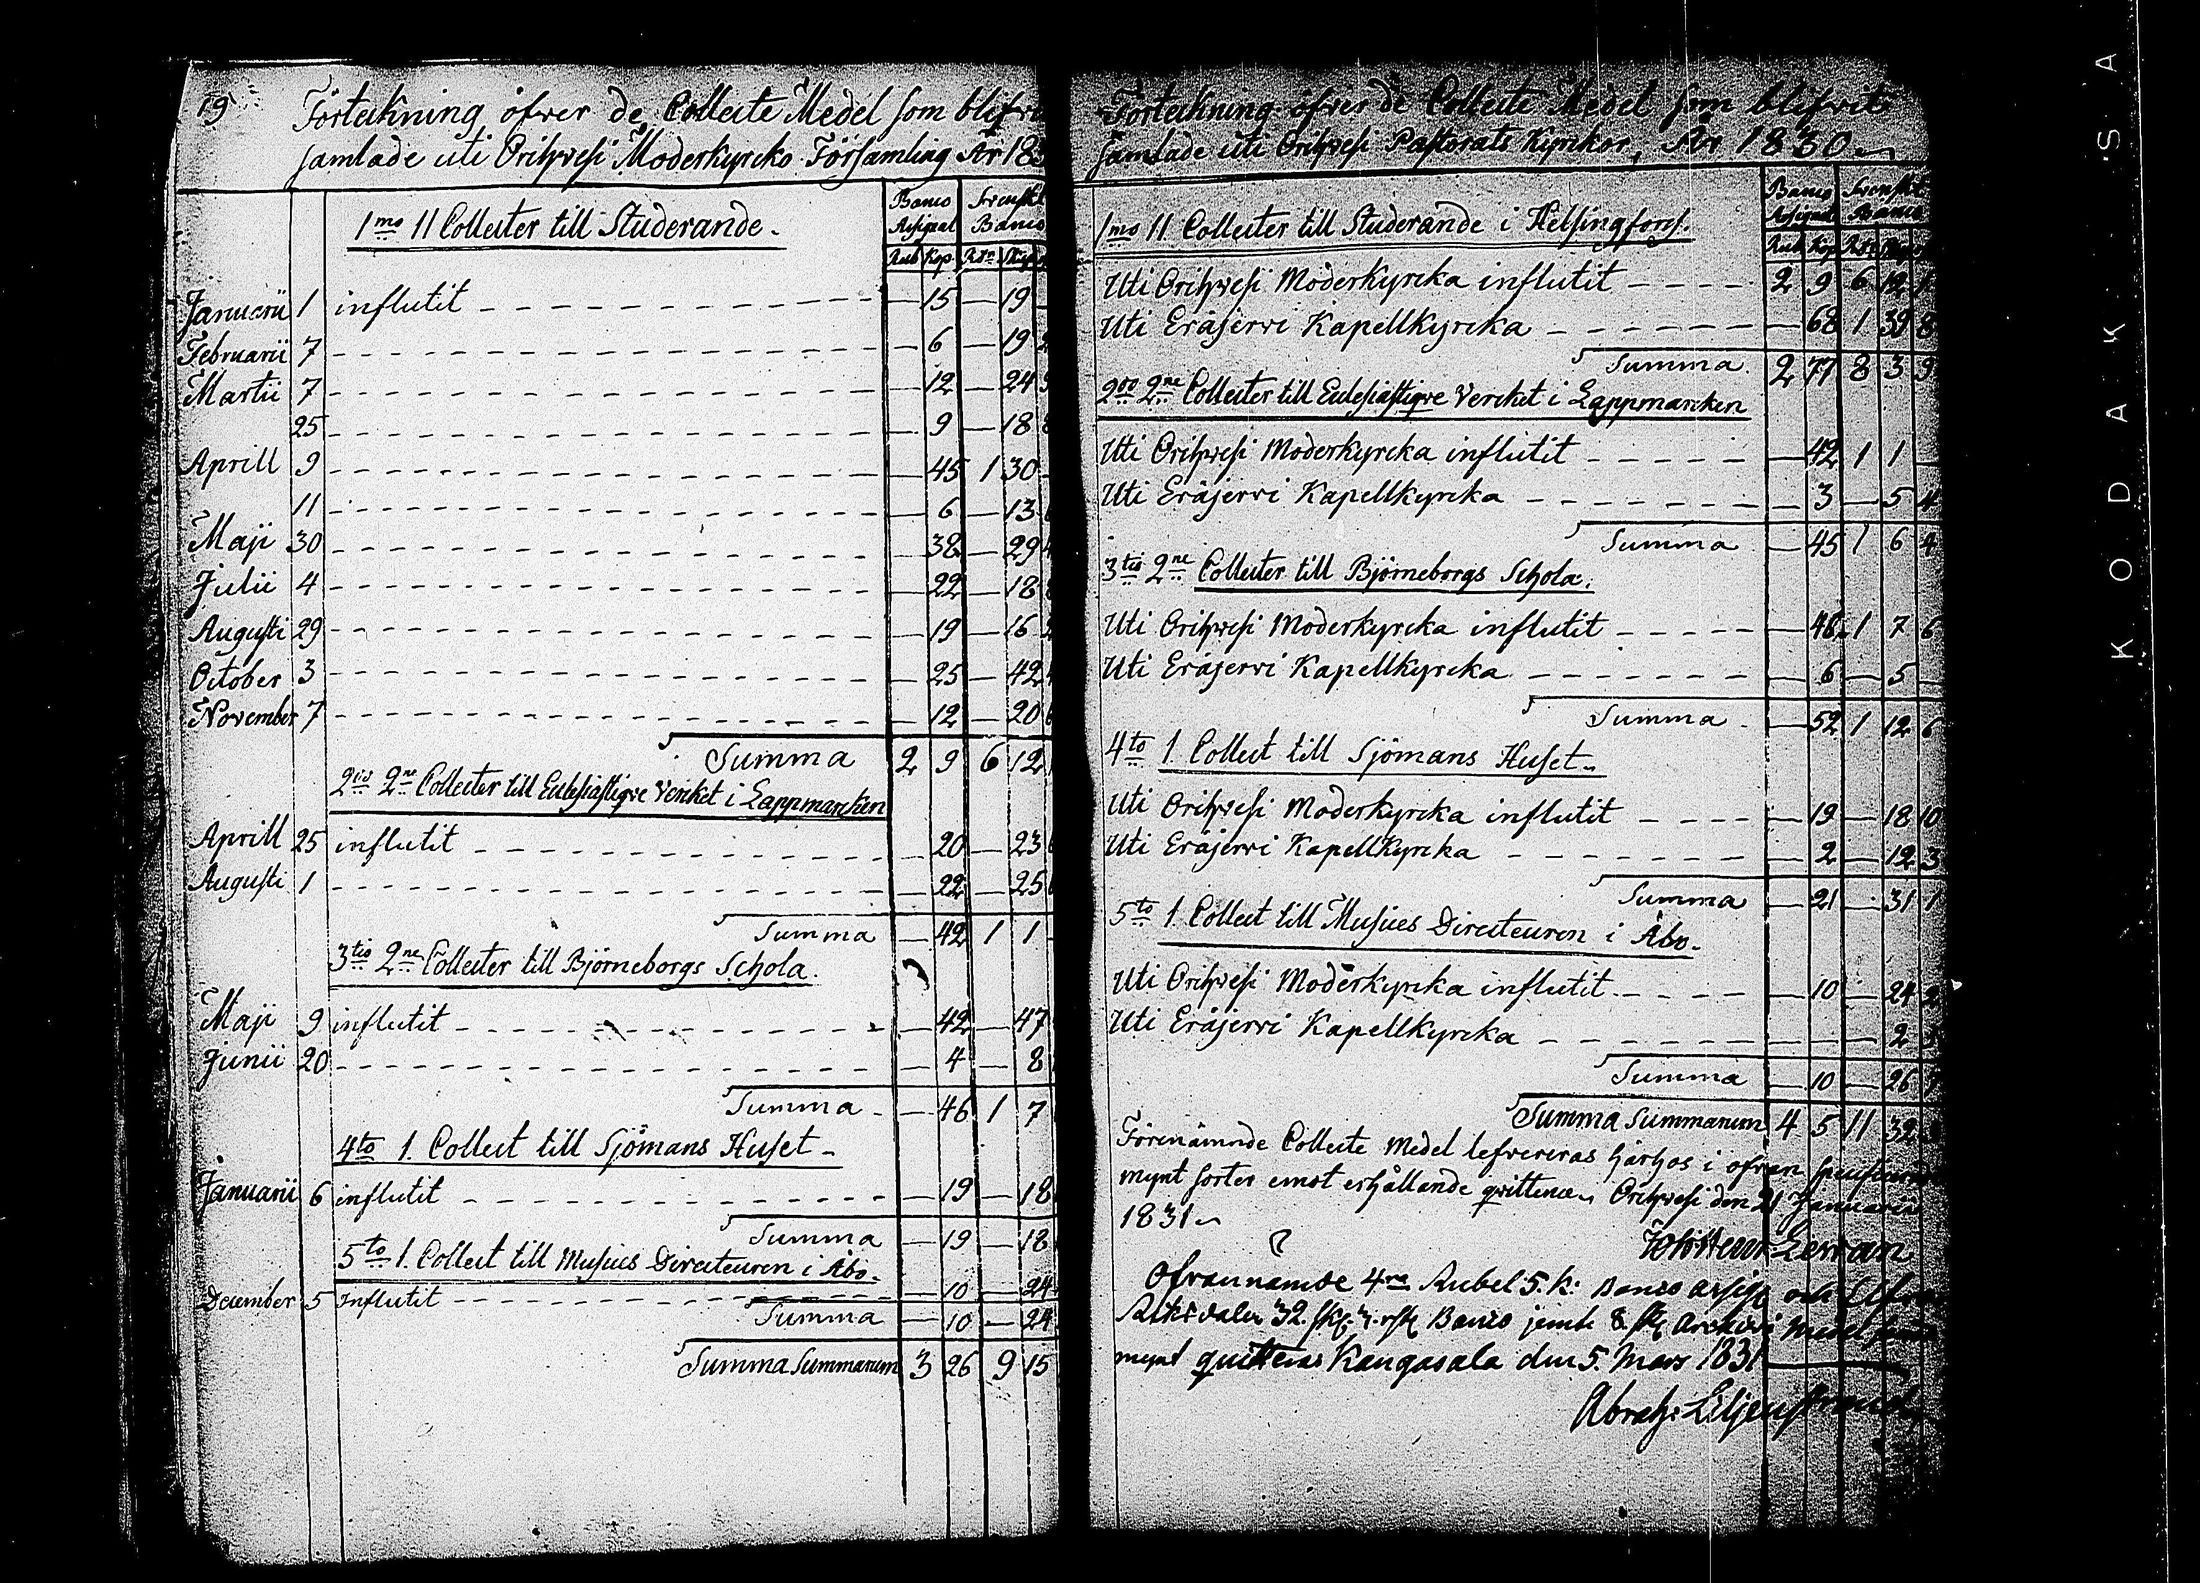 19
Förteckning öfver de Collecte Medel som blifvi
samlade uti Orihvesi Moderkyrcko Församling År 183
Banco Svenskt
Assignat Banco
Rub Kop Rdr Sk
1mo 11 Collecter till Studerande.
Januarii 1 influtit — 15 — 19 —
Februarii 7 — 6 — 19
Martii 7 — 12 — 24
25 — 9 — 18
Aprill 9 — 45 1 30
11 — 6 — 13
Maji 30 — 38 — 29
Julii 4 — 22 — 18
Augusti 29 — 19 — 16
October 3 — 25 — 42
November 7 — 12 — 20
Summa 2 9 6 12
2do 2ne Collecter till Ecclesiastiqve Vercket i Lappmarcken
Aprill 25 influtit — 20 — 23
Augusti 1 — 22 — 25
Summa — 42 1 1
3tio 2ne Collecter till Björneborgs Schola.
Maji 9 influtit — 42 — 47
Junii 20 — 4 — 8
Summa — 46 1 7
4to 1. Collect till Sjömans Huset
Januarii 6 influtit — 19 — 18
Summa — 19 — 18
5to 1. Collect till Musices Directeuren i Åbo.
December 5 Influtit — 10 — 24
Summa — 10 — 24
Summa Summarum 3 26 9 15
Förteckning öfver de Collecte Medel som blifvit
samlade uti Orihvesi Pastorats Kyrckor, År 1830
Banco Svenskt
Assignat Banco
Rub Kop Rdr
1mo 11 Collecter till Studerande i Helsingfors.
Uti Orihvesi Moderkyrcka influtit 2 9 6 12 1
Uti Eräjervi Kapellkyrcka — 68 1 39 8
Summa 2 77 8 3 9
2do 2ne Collecter till Ecclesiastiqve Vercket i Lappmarcken
Uti Orihvesi Moderkyrcka influtit — 42 1 1 —
Uti Eräjervi Kapellkyrcka — 3 — 5 4
Summa — 45 1 6 4
3tio 2ne Collecter till Björneborgs Schola.
Uti Orihvesi Moderkyrcka influtit — 46 1 7 6
Uti Eräjervi Kapellkyrcka — 6 — 5 —
Summa — 52 1 12 6
4to 1. Collect till Sjömans Huset
Uti Orihvesi Moderkyrcka influtit — 19 — 18 10
Uti Eräjervi Kapellkyrcka — 2 — 12 3
Summa — 21 — 31 1
5to 1. Collect till Musices Directeuren i Åbo.
Uti Orihvesi Moderkyrcka influtit — 10 — 24 2
Uti Eräjervi Kapellkyrcka — — — 2 5
Summa — 10 — 26 7
Summa Summarum 4 5 11 32
Förenämnde Collecte Medel lefvereras härhos i ofvan
mynt sorter emot erhållande qvittence Orihvesi den 21 Januarii
1831
Ofvannämde 4ra Rubel 5. k: Banco assig och Elfva
Riksdaler 32 sk. 3. rst Banco jemte 8 sk Archivi Medel
mynt quitteras Kangasala den 5. Mars 1831
Abrah: Liljenstrand
K O D A K S A